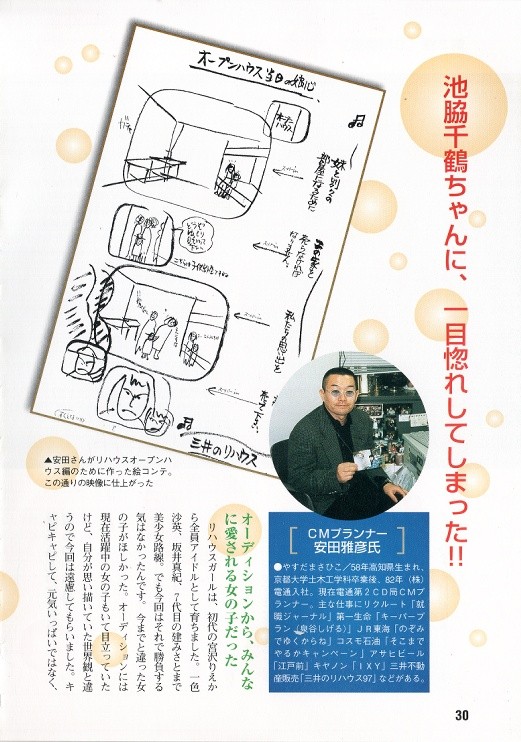 池脇千鶴ちゃんに、一目惚れしてしまった!!
オープンハウス当日の妹心、
妹と別々の
部屋になるために
この家を
売らなければ
なりません。
私たちの思い出と
三井のリハウス
▲安田さんがリハウスオープンハ
ウス編のために作った絵コンテ。
この通りの映像に仕上がった
CMプランナー
安田雅彦氏
●やすだまさひこ／'58年高知県生まれ、
京都大学土木工学科卒業後、82年（株）
電通入社。現在電通第2CD局CMプ
ランナー。主な仕事にリクルート「就
職ジャーナル」第一生命「キーパープ
ラン（泉谷しげる）」JR東海「のぞみ
でゆくからね」コスモ石油「そこまで
やるかキャンペーン」アサヒビール
「江戸前」キヤノン「IXY」三井不動
産販売「三井のリハウス97」などがある。
オーディションから、みんな
に愛される女の子だった
リハウスガールは、初代の宮沢りえか
ら全員アイドルとして育ちました。一色
沙英、坂井真紀、7代目の建みさとまで
美少女路線。でも今回はそれで勝負する
気はなかったんです。今までと違った女
の子がほしかった。オーディションには
現在活躍中の女の子もいて目立っていた
けど、自分が思い描いていた世界観と違
うので今回は遠慮してもらいました。キ
ャピキャピして、元気いっぱいではなく、
30